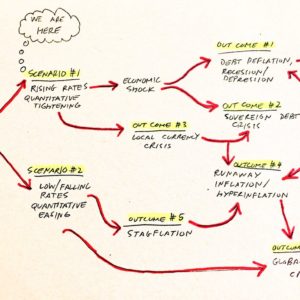 WE ARE
HERE
SCENARIO #1
RISING RATES
QUANTITATIVE
TIGHTENING
ECONOMIC
SHOCK
OUTCOME #1
DEBT DEFLATION,
RECESSION/
DEPRESSION
OUTCOME #2
SOVEREIGN DEBT
CRISIS
OUTCOME #3
LOCAL CURRENCY
CRISIS
OUTCOME #4
RUNAWAY
INFLATION/
HYPERINFLATION
SCENARIO #2
LOW/FALLING
RATES
QUANTITATIVE
EASING
OUTCOME #5
STAGFLATION
OUTCOME
GLOBA
C